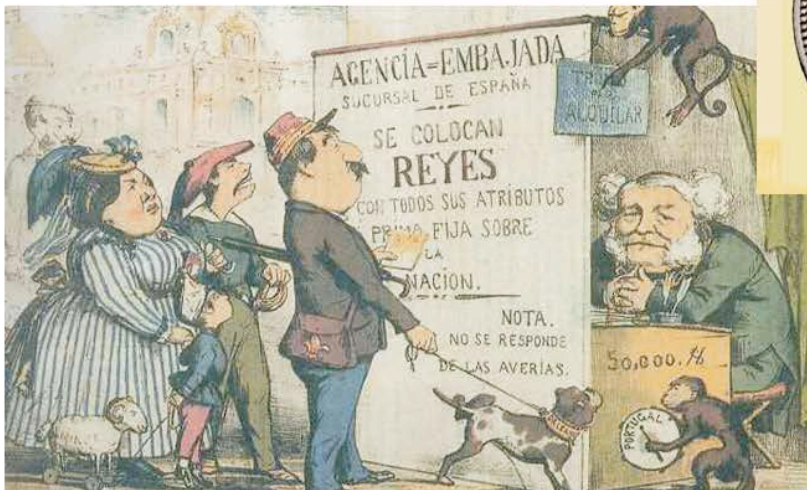 AGENCÍA=EMBAJADA
SUCURSAL DE ESPAÑA
SE COLOCAN
REYES
CON TODOS SUS ATRIBUTOS
PRIMA FIJA SOBRE
LA
NACION.
NOTA.
NO SE RESPONDE
DE LAS AVERÍAS.
ALQUILAR
50,000.
PORTUGAL